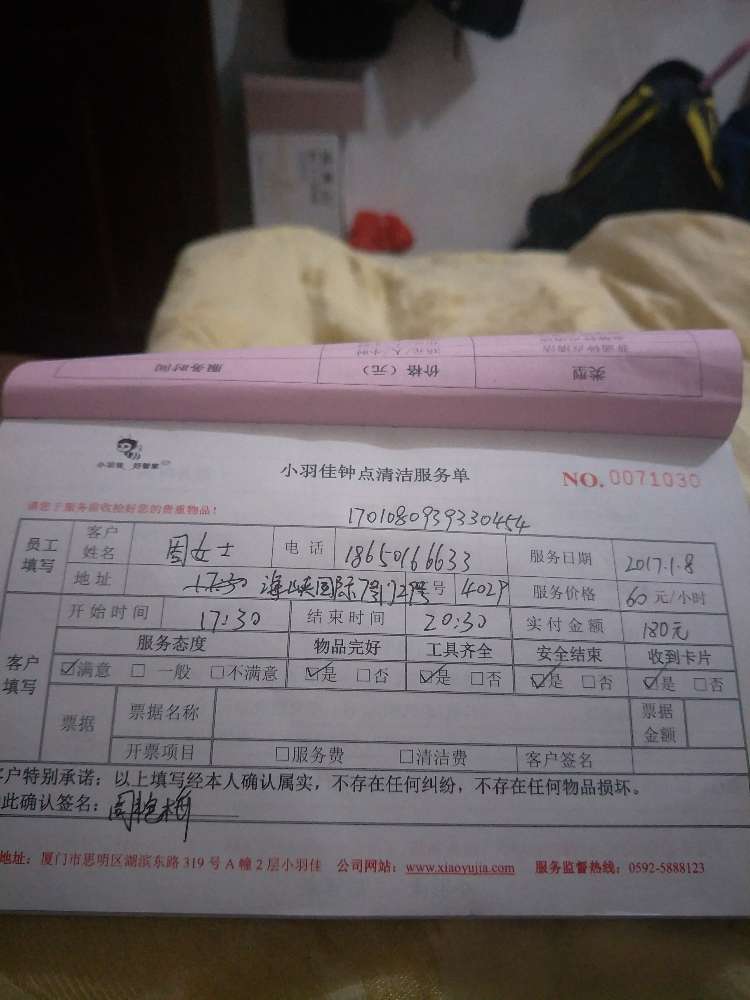 服务时间 价格（元） 类型
小羽佳 好管家
小羽佳钟点清洁服务单 NO.0071030
请您于服务前收检好您的贵重物品！
1701080939330454
员工填写 客户姓名 周女士 电话 18650166633 服务日期 2017.1.8
地址 17:30 海峡国际 号 402 服务价格 60元/小时
客户填写 开始时间 17:30 结束时间 20:30 实付金额 180元
服务态度 物品完好 工具齐全 安全结束 收到卡片
☑满意 □一般 □不满意 ☑是 □否 ☑是 □否 ☑是 □否 ☑是 □否
票据 票据名称 票据金额
开票项目 □服务费 □清洁费 客户签名
客户特别承诺：以上填写经本人确认属实，不存在任何纠纷，不存在任何物品损坏。
此确认签名：
地址：厦门市思明区湖滨东路319号A幢2层小羽佳 公司网站：www.xiaoyujia.com 服务监督热线：0592-5888123